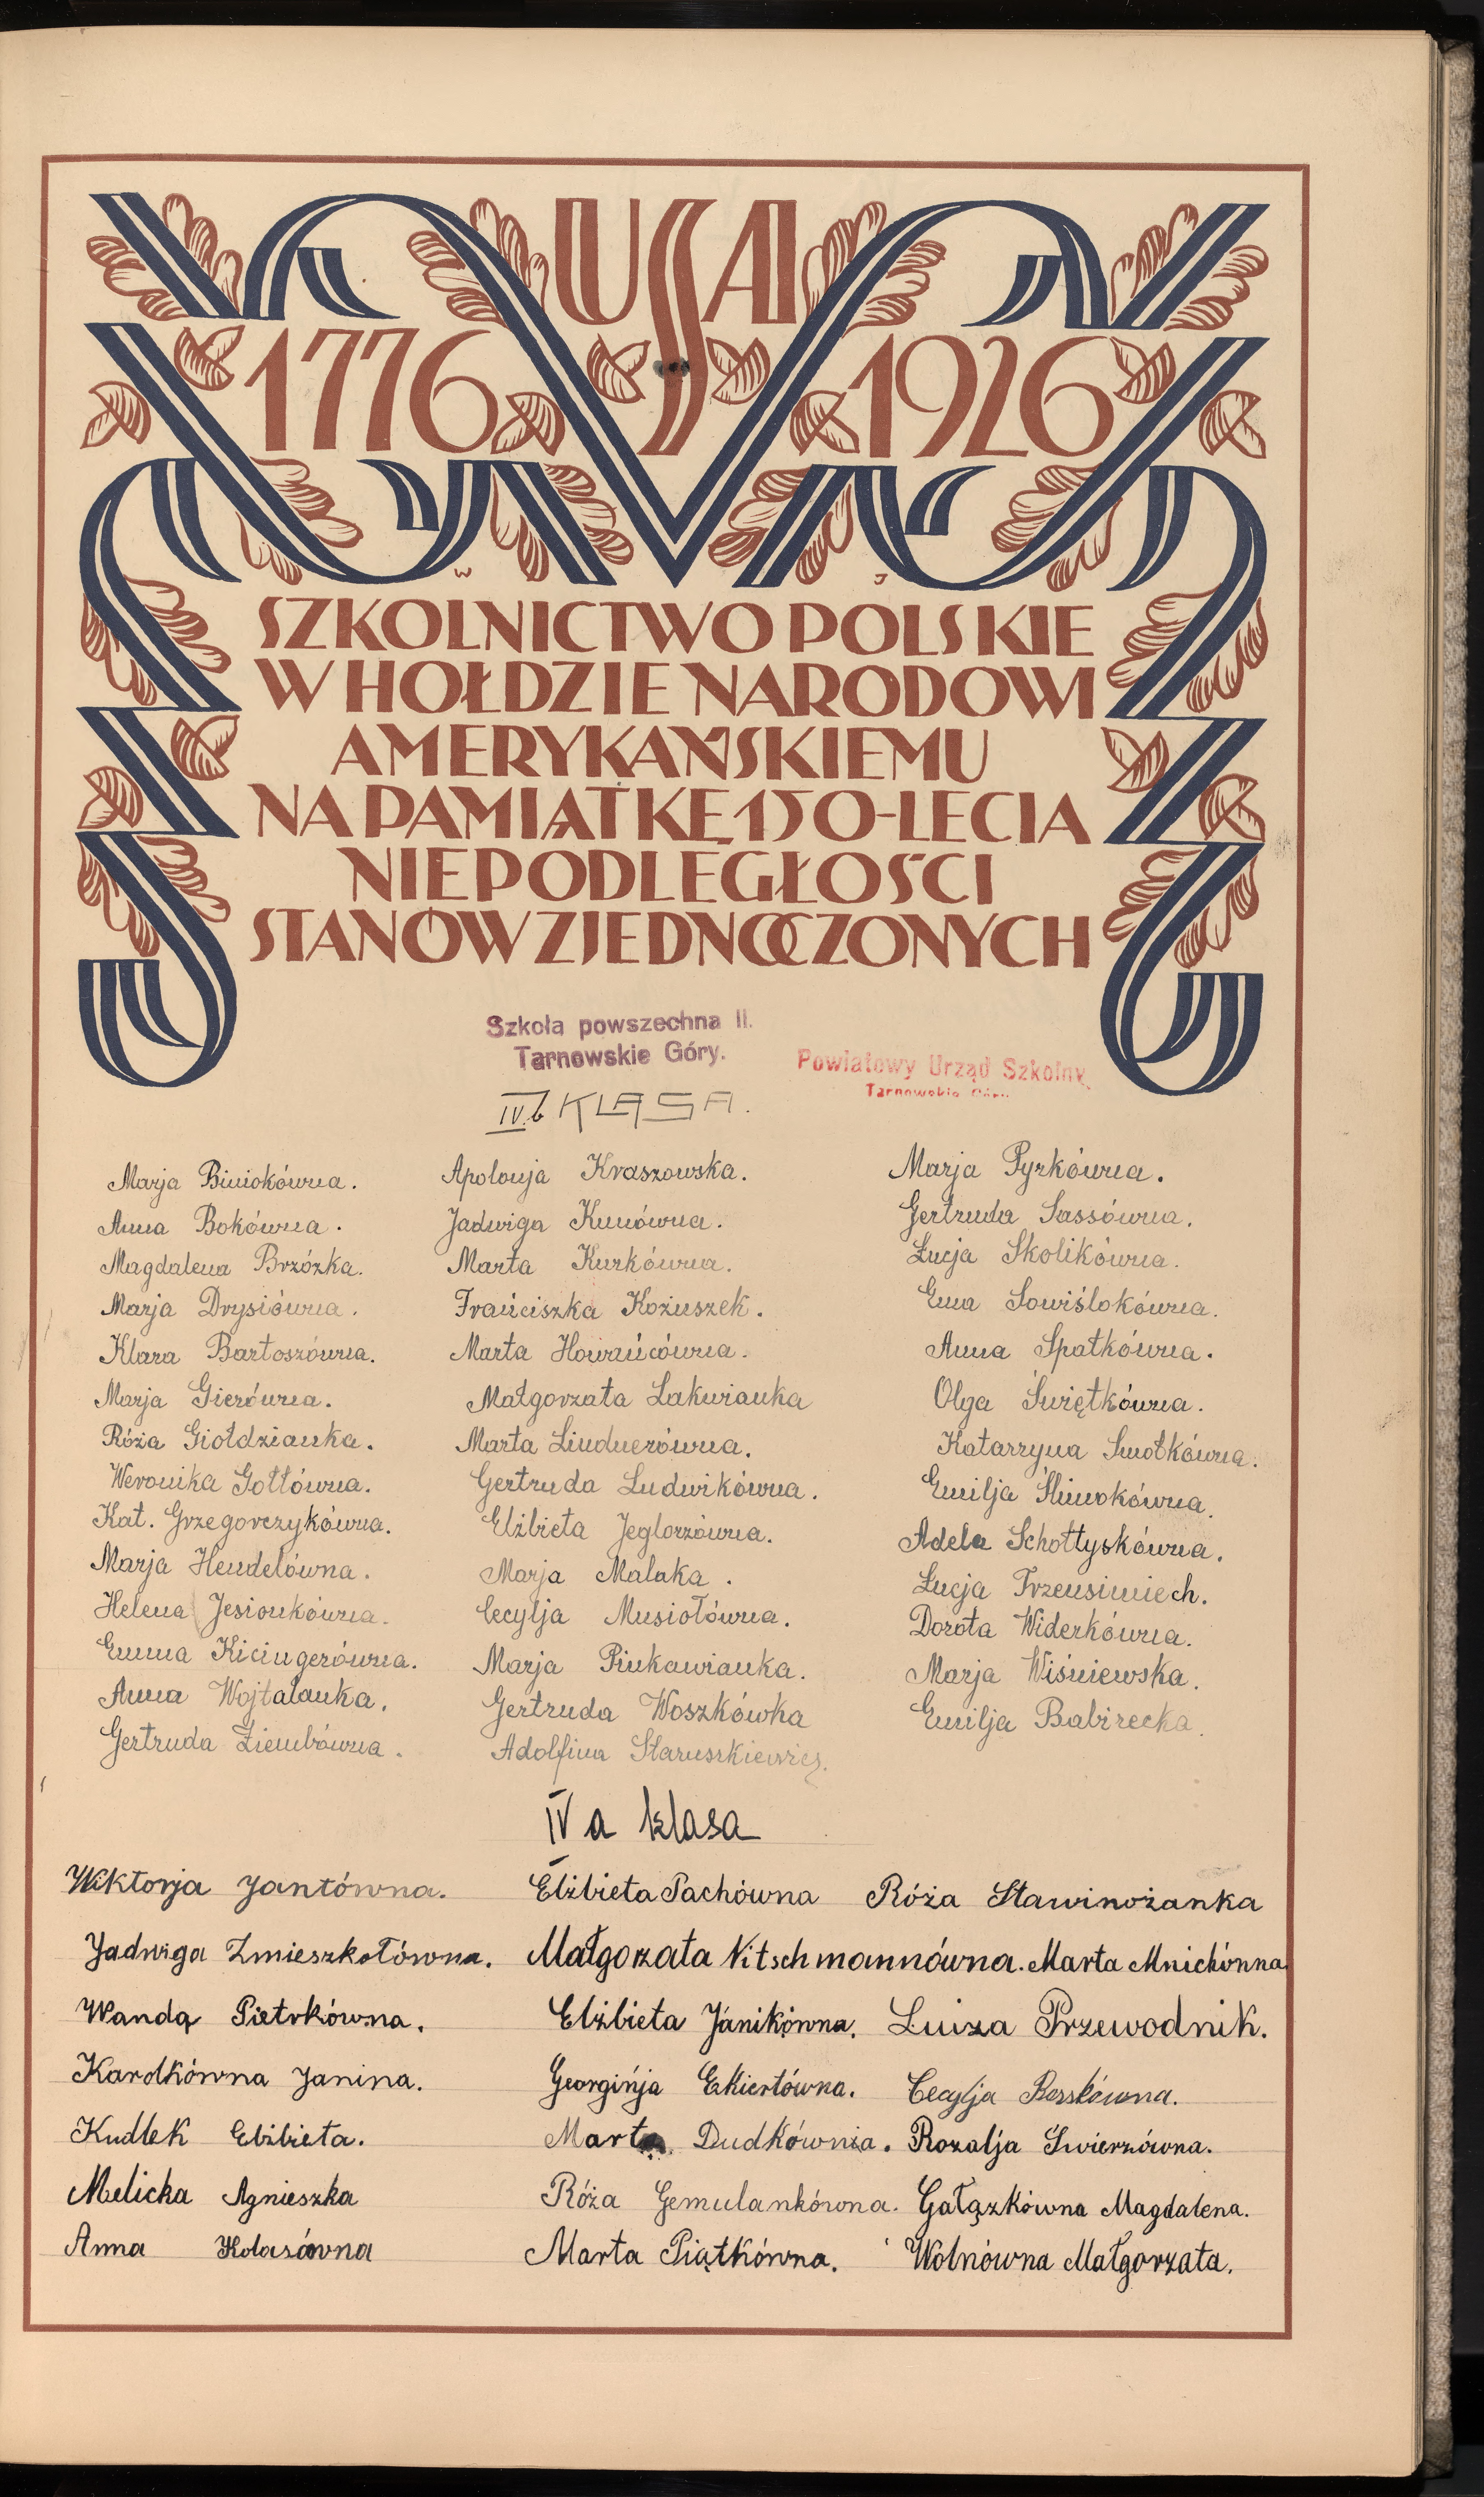 USA
1776 1926
W J
SZKOLNICTWO POLSKIE
W HOŁDZIE NARODOWI
AMERYKAŃSKIEMU
NA PAMIĄTKĘ 150-LECIA
NIEPODLEGŁOŚCI
STANÓW ZJEDNOCZONYCH
Szkoła powszechna II.
Tarnowskie Góry.
Powiatowy Urząd Szkolny
Tarnowskie Góry
IV.b KLASA.
Marja Biniokówna.
Anna Bokówna.
Magdalena Brzózka.
Marja Drysiówna.
Klara Bartoszówna.
Marja Gierówna.
Róża Giołdzianka.
Weronika Gołtówna.
Kat. Grzegorczykówna.
Marja Hendelówna.
Helena Jesionkówna.
Emma Kicingerówna.
Anna Wojtalanka.
Gertruda Ziembówna.
Apolonja Kraszowska.
Jadwiga Kunówna.
Marta Kurkówna.
Frańciszka Kożuszek.
Marta Howańcówna.
Małgorzata Lakwianka
Marta Lindnerówna.
Gertruda Ludwikówna.
Elżbieta Jeglorzówna.
Marja Malaka.
Cecylja Musiołówna.
Marja Pinkawianka.
Gertruda Woszkówka
Adolfina Staruszkiewicz.
Marja Pyrkówna.
Gertruda Sassówna.
Łucja Skolikówna.
Ema Sowiślokówna.
Anna Spatkówna.
Olga Świętkówna.
Katarzyna Smołkówna.
Emilja Śliwokówna.
Adela Schołtyskówna.
Łucja Trzensimiech.
Dorota Widerkówna.
Marja Wiśniewska.
Emilja Babirecka.
IV a klasa
Wiktorja Jantówna.
Jadwiga Zmieszkołówna.
Wanda Pietrkówna.
Karolkówna Janina.
Kudlek Elżbieta.
Melicka Agnieszka
Anna Kolasówna
Elżbieta Pachówna
Małgorzata Nitschmannówna.
Elżbieta Janikówna.
Georginja Ekiertówna.
Marta Dudkównia.
Róża Gemulankówna.
Marta Piątkówna.
Róża Stawinożanka
Marta Mnichówna
Luiza Przewodnik.
Cecylja Berskówna.
Rozalja Świerzówna.
Gałązkówna Magdalena.
Wolnówna Małgorzata.